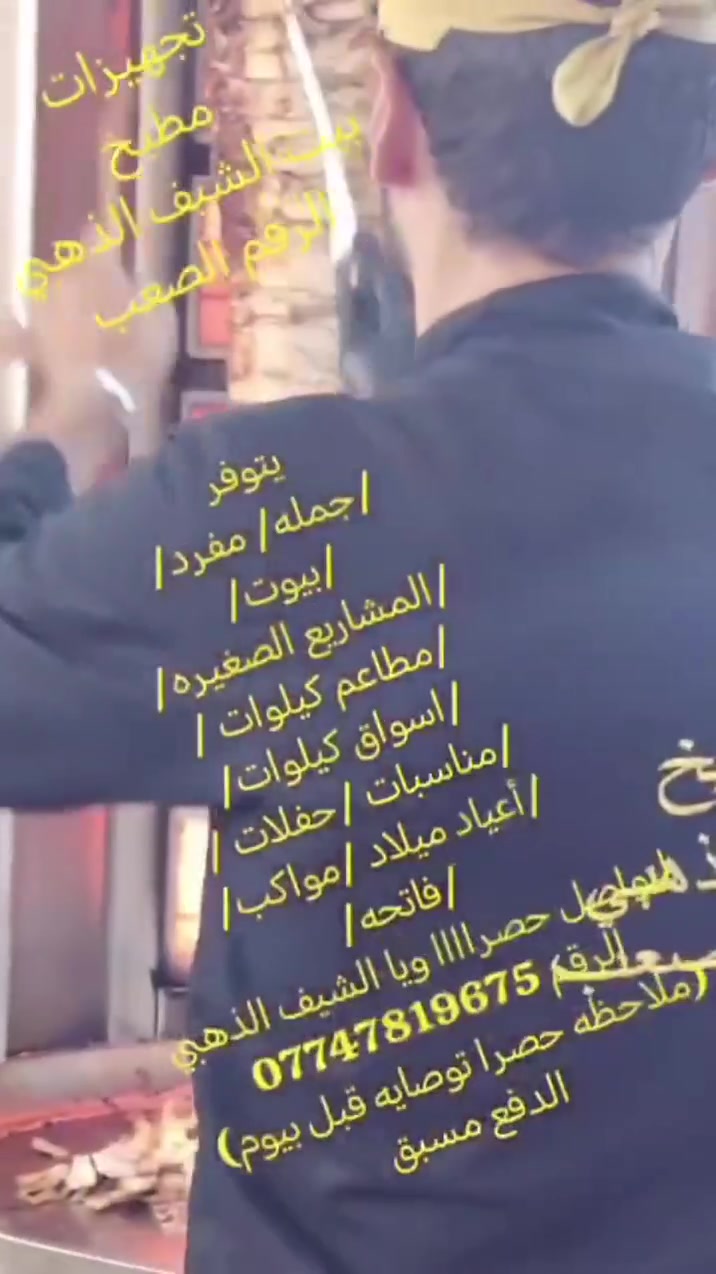 تجهيزات
مطبخ
بيت الشيف الذهبي
الرقم الصعب
يتوفر
|جمله| مفرد|
|بيوت|
|المشاريع الصغيره|
|مطاعم كيلوات |
|اسواق كيلوات|
|مناسبات |حفلات |
|أعياد ميلاد |مواكب|
|فاتحه|
للتواصل حصراااا ويا الشيف الذهبي
الرقم 07747819675
(ملاحظه حصرا توصايه قبل بيوم)
الدفع مسبق